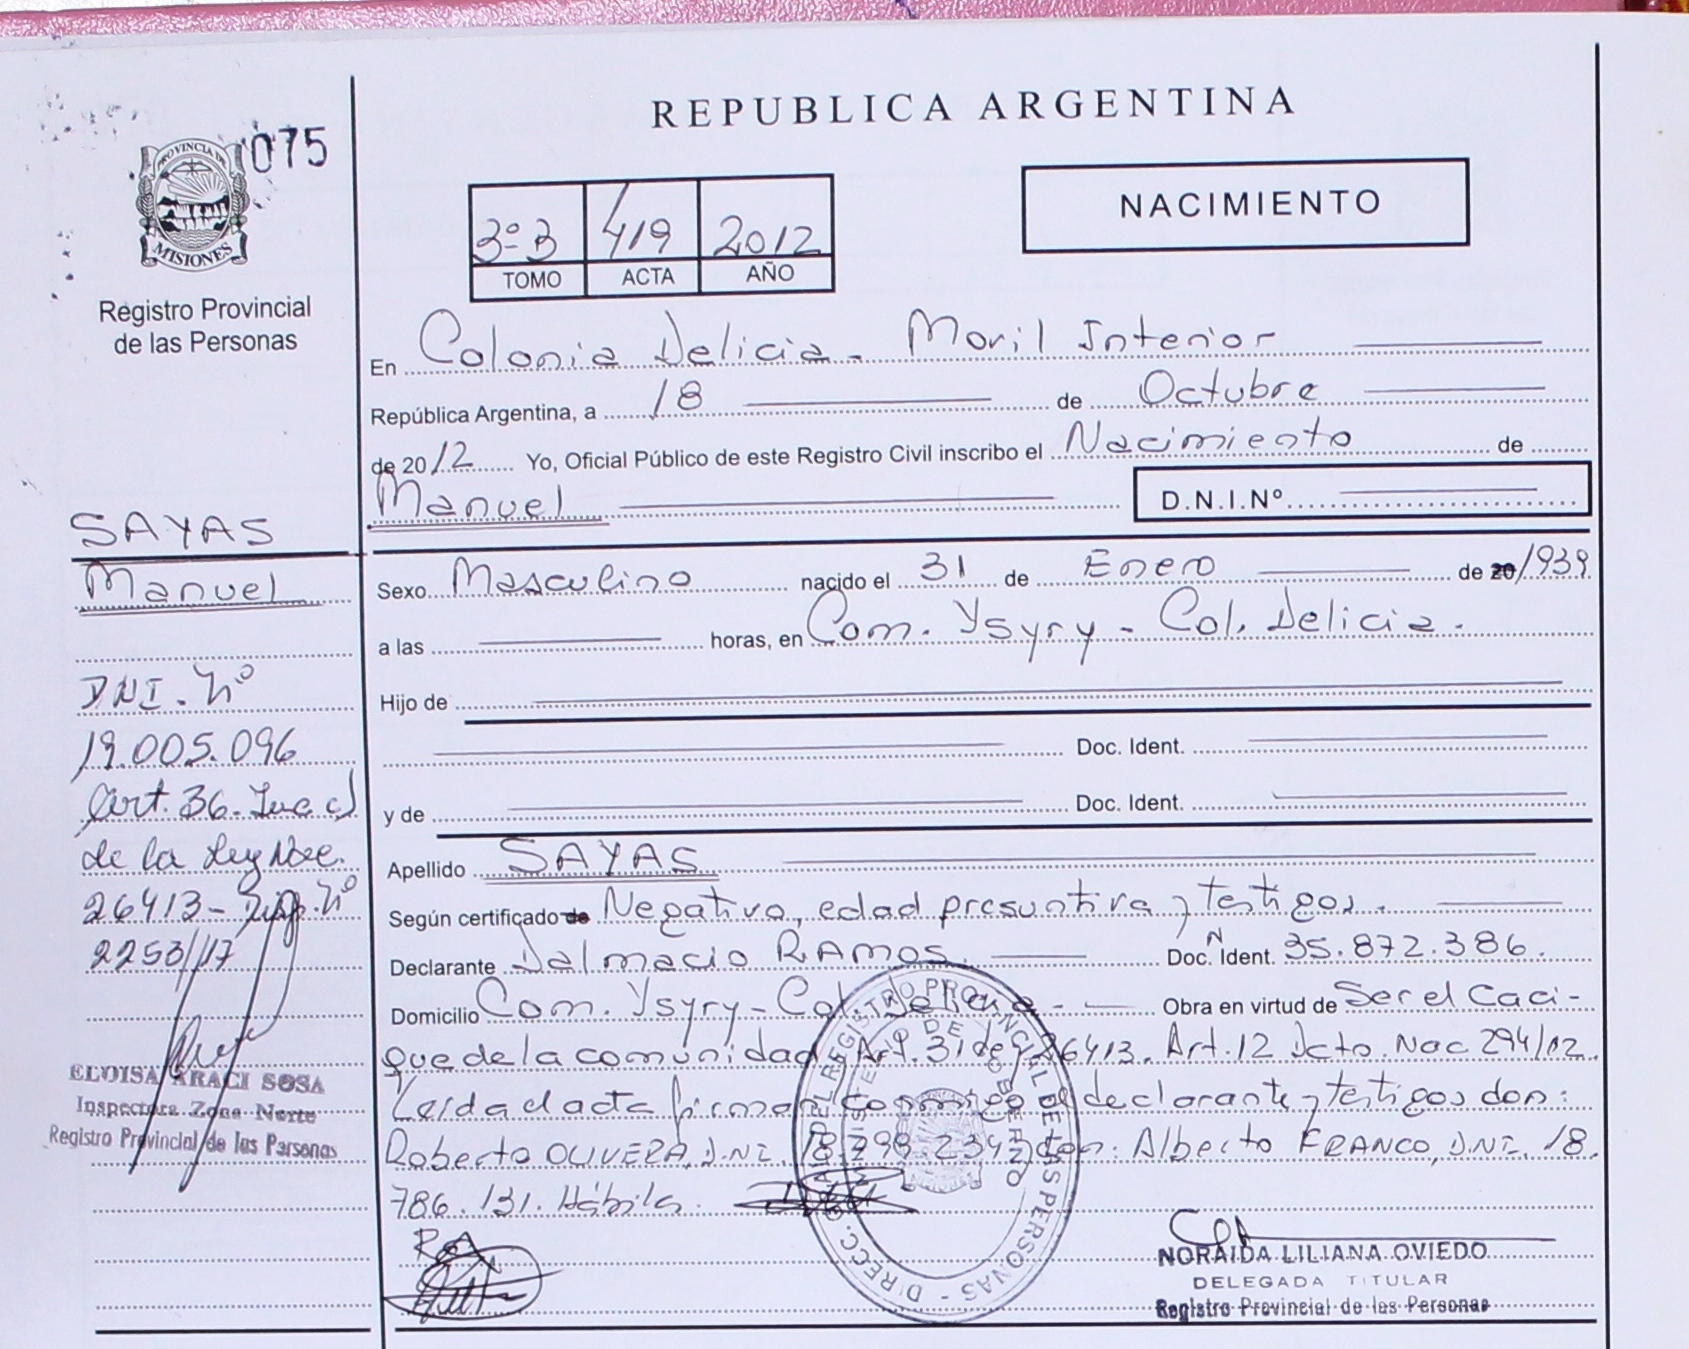 REPUBLICA ARGENTINA
075
PROVINCIA DE
MISIONES
Registro Provincial
de las Personas
3º B 419 2012
TOMO ACTA AÑO
NACIMIENTO
En Colonia Delicia - Moril Interior
República Argentina, a 18 de Octubre
de 2012 Yo, Oficial Público de este Registro Civil inscribo el Nacimiento de
Manuel D.N.I.Nº
Sexo Masculino nacido el 31 de Enero de 20 1939
a las horas, en Com. Ysyry - Col. Delicia.
Hijo de
Doc. Ident.
y de Doc. Ident.
Apellido SAYAS
Según certificado de Negativo, edad presuntiva y testigos.
Declarante Dalmacio RAMOS Doc. N Ident. 35.872.386.
Domicilio Com. Ysyry - Col. Delicia - Obra en virtud de Ser el Caci-
que de la comunidad Art. 31 de 26413. Art. 12 Dcto. Nac 294/02.
Leida el acta firman conmigo el declarante y testigos don:
Roberto OLIVERA, D.N.I. 18.298.234 y don: Alberto FRANCO, D.N.I. 18.
786.131. Hábiles.
NORAIDA LILIANA OVIEDO
DELEGADA TITULAR
Registro Provincial de las Personas
SAYAS
Manuel
DNI. Nº
19.005.096
Art. 36. Inc c)
de la Ley Nac.
26413 - Disp. Nº
2253/17
ELOISA ARACI SOSA
Inspectora Zona Norte
Registro Provincial de las Personas
DIRECC. REGISTRO PROVINCIAL DE LAS PERSONAS
MINISTERIO DE GOBIERNO